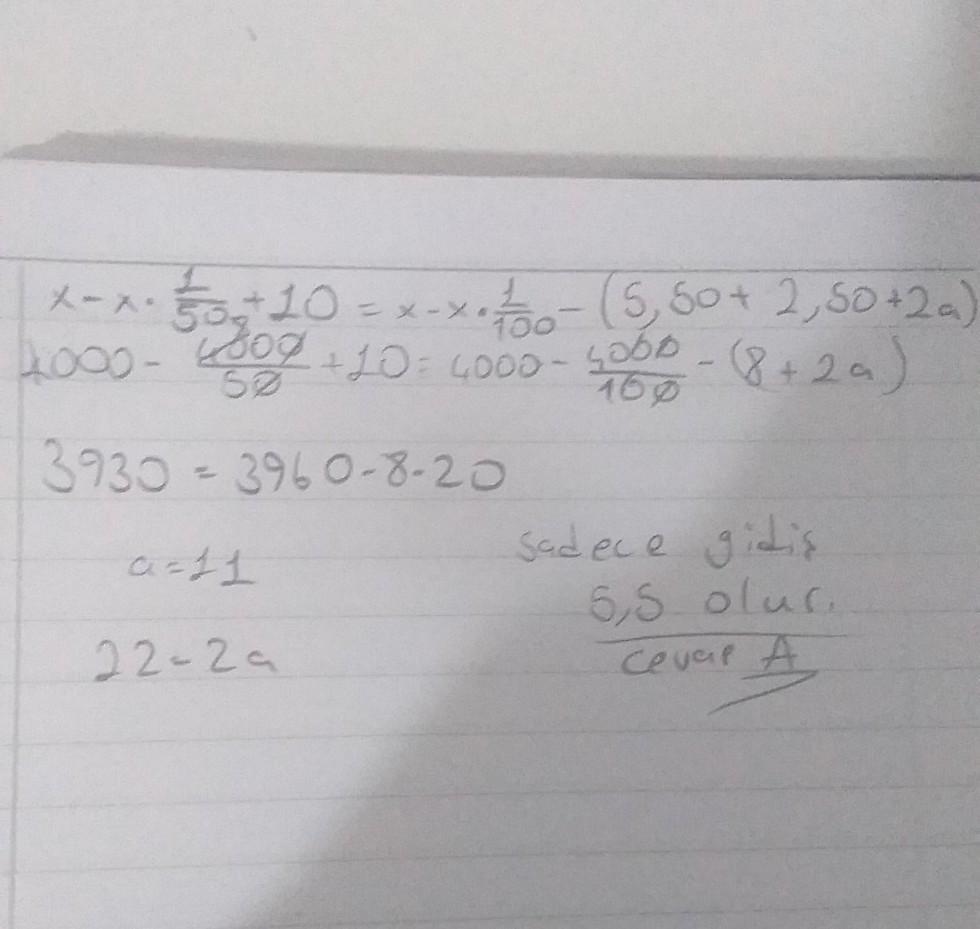 x - x · 1/50 + 10 = x - x · 1/100 - (5,50 + 2,50 + 2a)
4000 - 4000/50 + 10 = 4000 - 4000/100 - (8 + 2a)
3930 = 3960 - 8 - 2a
a = 11
22 = 2a
sadece gidiş
5,5 olur.
cevap A